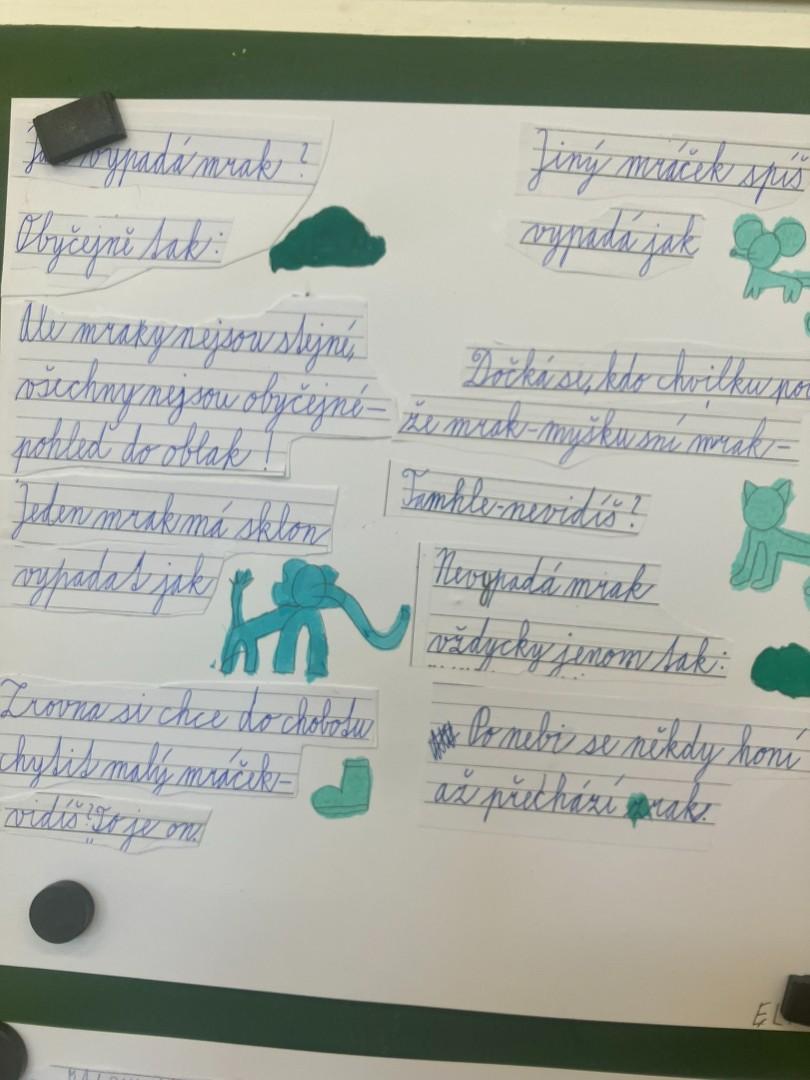 vypadá mrak ?
Obyčejně tak:
Ale mraky nejsou stejné,
všechny nejsou obyčejné-
pohleď do oblak !
Jeden mrak má sklon
vypadat jak
Zrovna si chce do chobotu
chytit malý mráček-
vidíš? To je on.
Jiný mráček spíš
vypadá jak
Dočká se, kdo chvilku
že mrak-myšku sní mrak-
Tamhle-nevidíš?
Nevypadá mrak
vždycky jenom tak:
Po nebi se někdy honí
až přechází zrak.